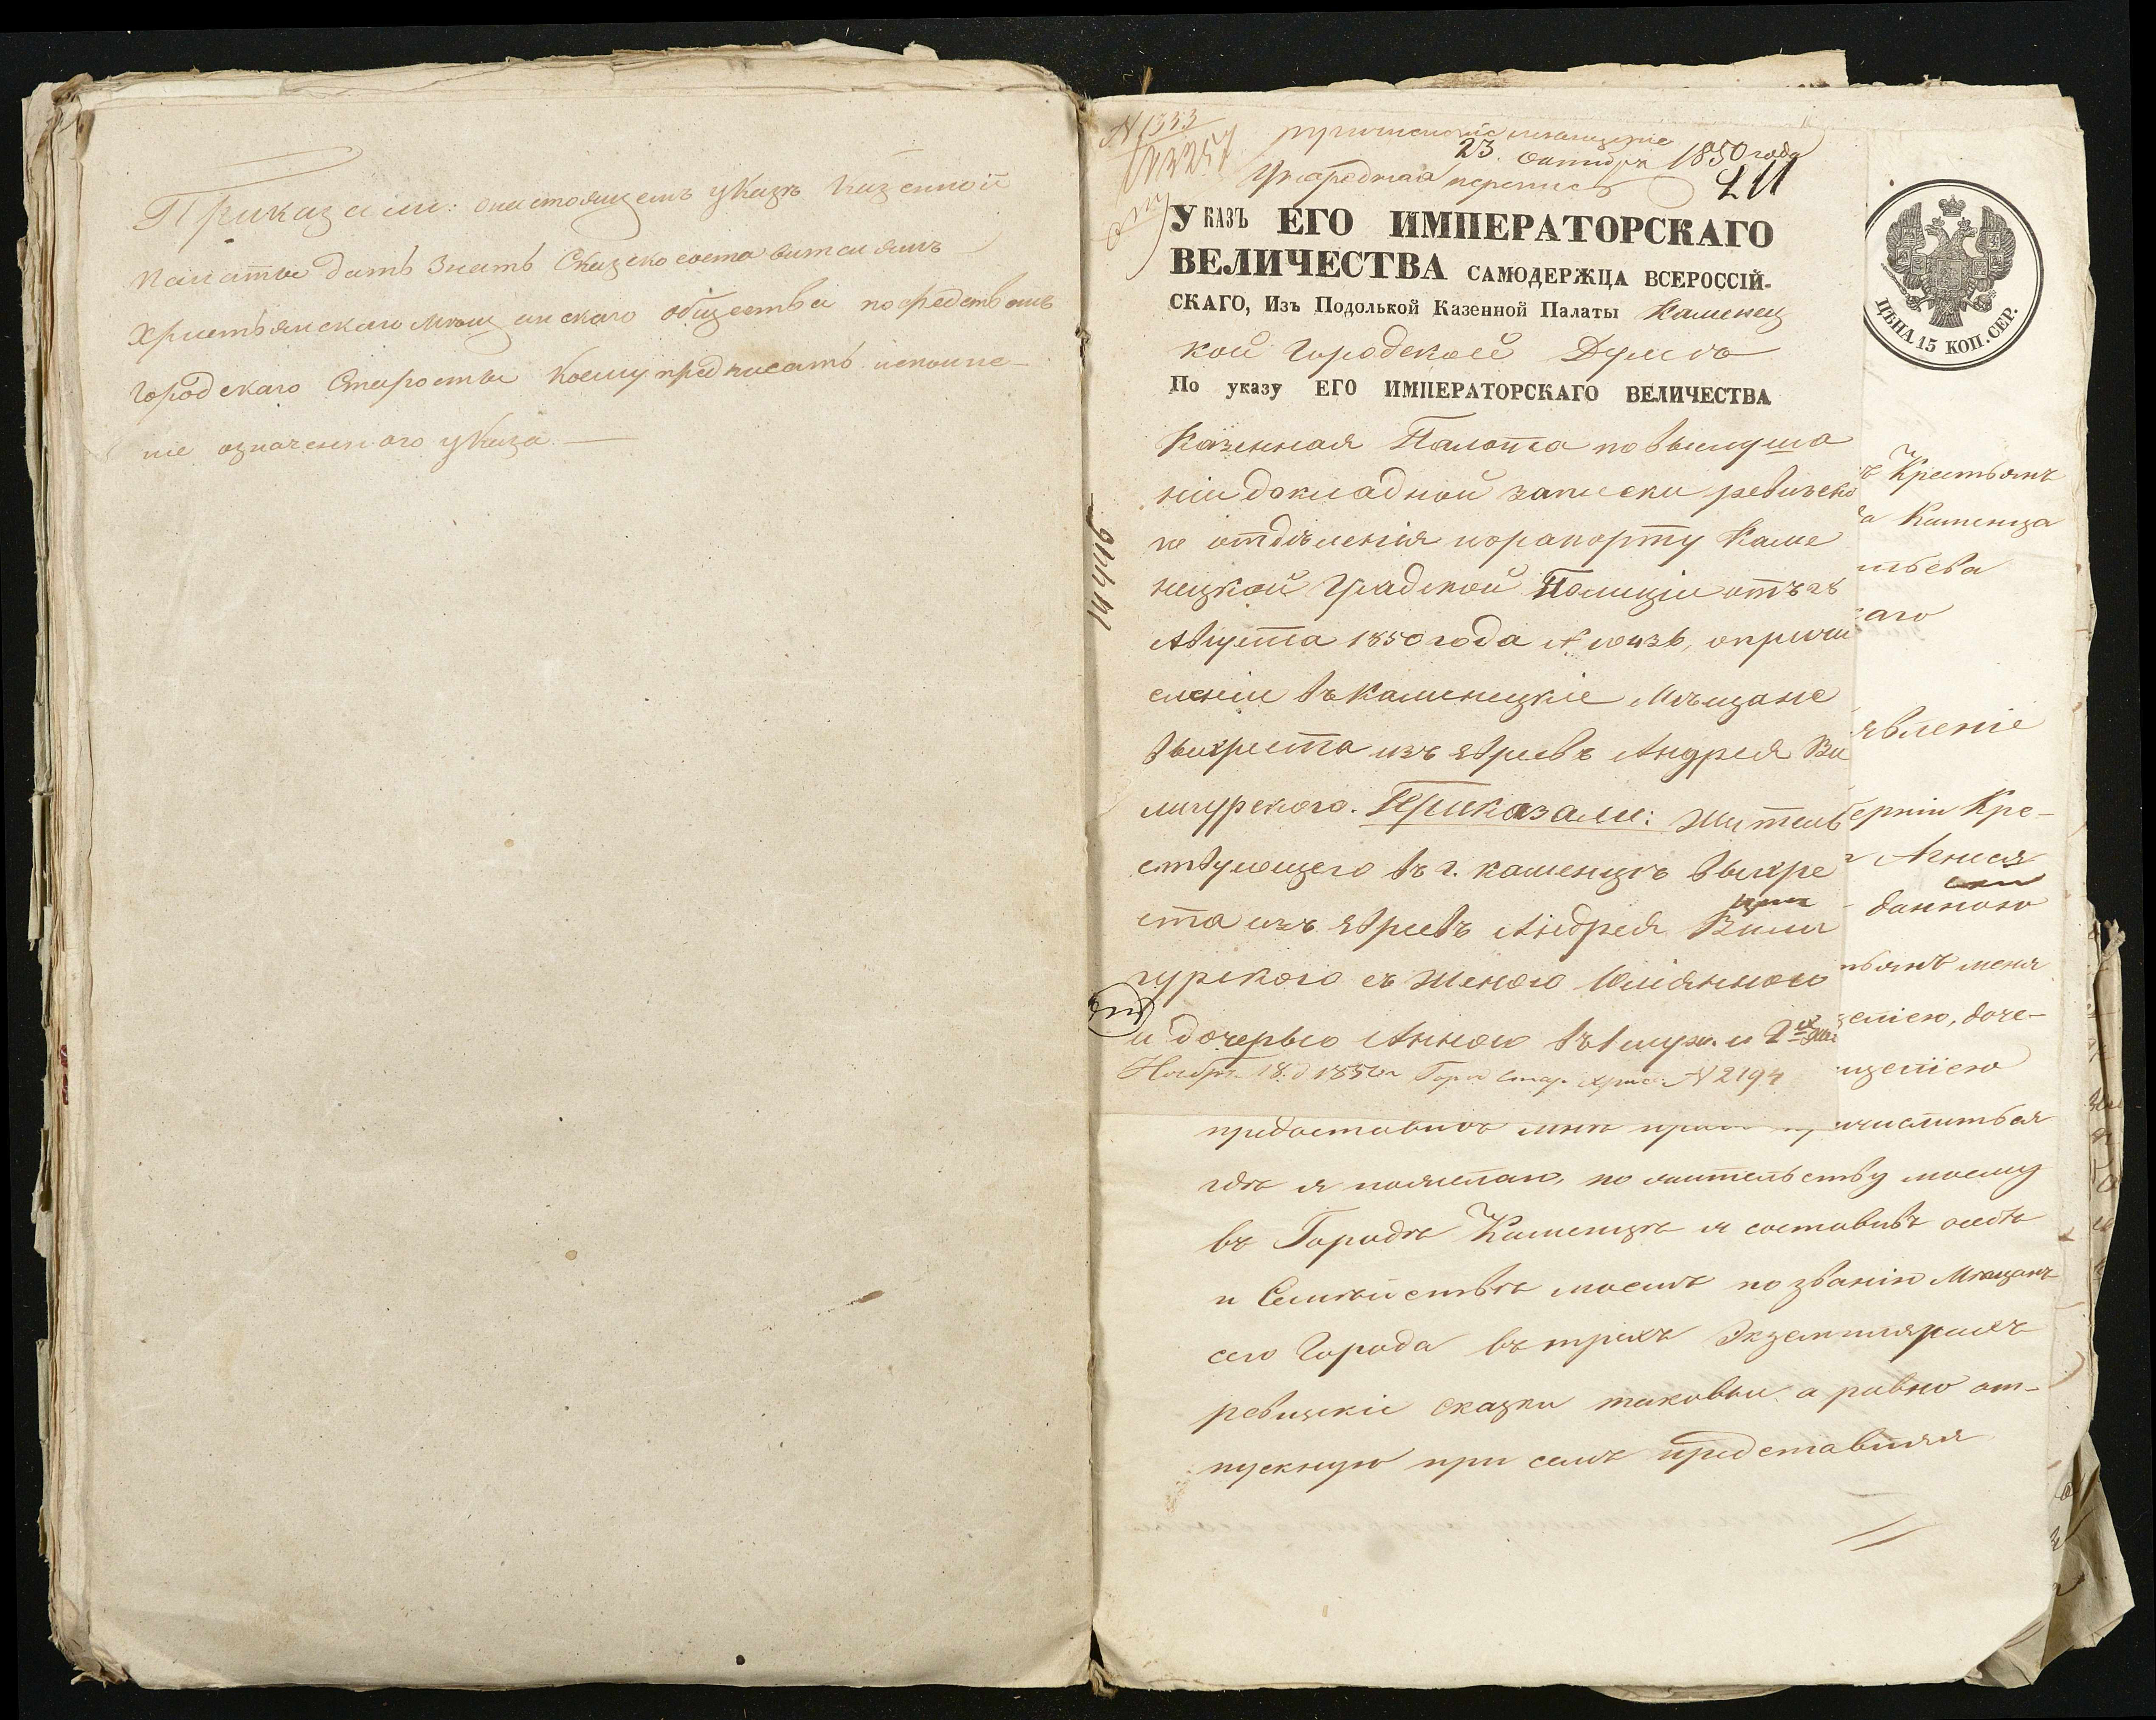 Приказали: о настоящемъ указѣ Казенной
Палаты дать знать Сказкосоставителямъ
Христьянскаго мѣщанскаго общества посредствомъ
Городскаго Старосты коему предписать исполне-
ніе означеннаго указа. —
N 1353
23 Октября 1850 года
211
УКАЗЪ ЕГО ИМПЕРАТОРСКАГО
ВЕЛИЧЕСТВА САМОДЕРЖЦА ВСЕРОССІЙ-
СКАГО, Изъ Подолькой Казенной Палаты Каменец
кой Городской Думѣ
По указу ЕГО ИМПЕРАТОРСКАГО ВЕЛИЧЕСТВА
Казенная Палата по выслуша
ніи докладной записки ревизско
го отдѣленія по рапорту Каме
нецкой Градской Полиціи отъ
Августа 1850 года N о причи
сленіи въ Каменецкіе Мѣщане
выкреста изъ евреевъ Андрея Ви
лигурского. Приказали: Жительс
ствующего въ г. Каменцѣ выкре
ста изъ евреевъ Андрея Вили
гурского съ женою Юліянною
и дочерью Анною въ 1 муж. и 2хъ
Ноября 18 д 1850 г Город Стар. Христ. N 2194
14446
ЦѢНА 15 КОП. СЕР.
Крестьянъ
Каменца
аго
явленіе
ерніи Кре-
данною
меня
доче-
предоставивъ мнѣ право числиться
гдѣ я пожелаю, по жительству моему
въ Городѣ Каменцѣ я составивъ о себѣ
и Семѣйствѣ моемъ по званію Мѣщанъ
сего Города въ трехъ Экземплярахъ
ревизскіе сказки таковыи а равно от-
пускную при семъ представляя